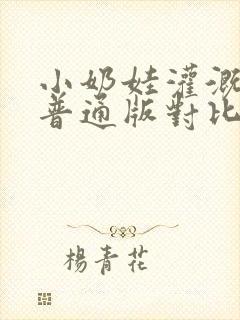 小奶娃灌溉
普通版對比
楊青花